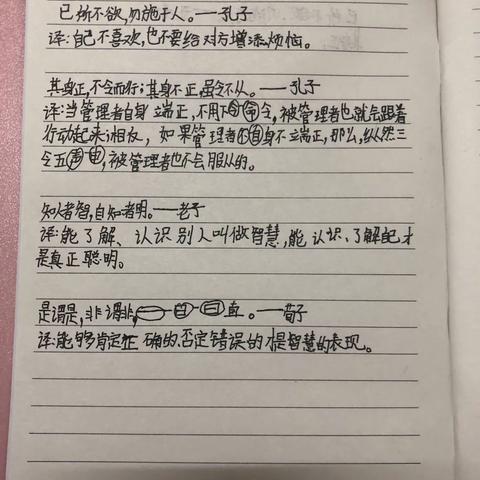 已所不欲,勿施于人。——孔子
译:自己不喜欢,也不要给对方增添烦恼。
其身正,不令而行;其身不正,虽令不从。——孔子
译:当管理者自身端正,不用下命令,被管理者也就会跟着
行动起来;相反,如果管理者自身不端正,那么,纵然三
令五申,被管理者也不会服从的。
知人者智,自知者明。——老子
译:能了解、认识别人叫做智慧,能认识、了解自己才
是真正聪明。
是谓是,非谓非,曰直。——荀子
译:能够肯定正确的、否定错误的才是智慧的表现。